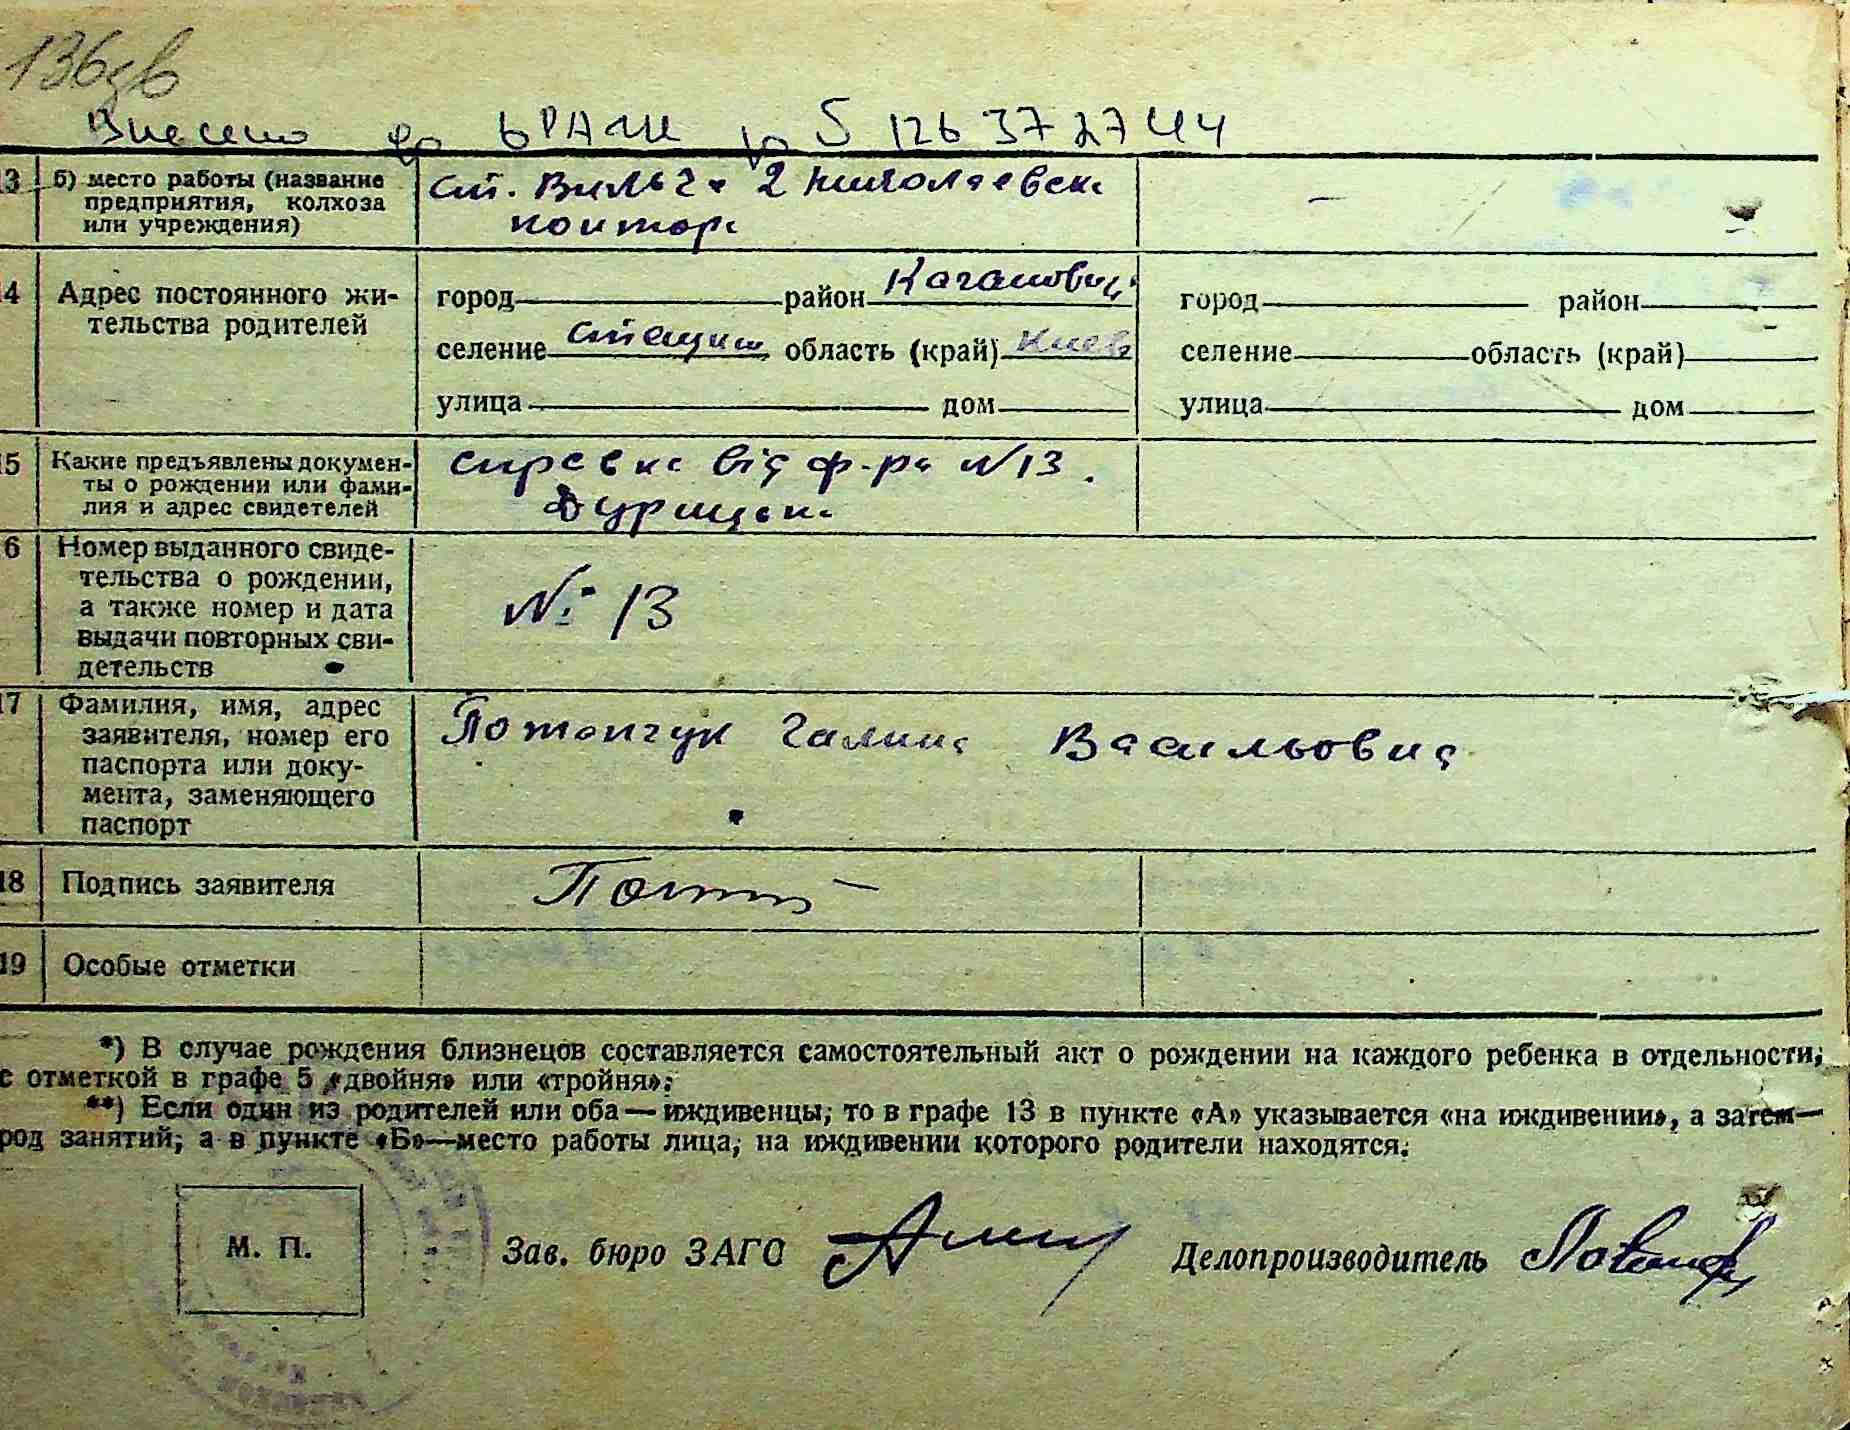 136зв
Внесено до
13 б) место работы (название
предприятия, колхоза
или учреждения)
ст. Вильча 2
контора
14 Адрес постоянного жи-
тельства родителей
город район Каганович.
селение область (край) Киев
улица дом
город район
селение область (край)
улица дом
15 Какие предъявлены докумен-
ты о рождении или фами-
лия и адрес свидетелей
справка від ф-ра N 13.
16 Номер выданного свиде-
тельства о рождении,
а также номер и дата
выдачи повторных сви-
детельств
№ 13
17 Фамилия, имя, адрес
заявителя, номер его
паспорта или доку-
мента, заменяющего
паспорт
Потапчук Галина Васильовна
18 Подпись заявителя
19 Особые отметки
*) В случае рождения близнецов составляется самостоятельный акт о рождении на каждого ребенка в отдельности,
с отметкой в графе 5 «двойня» или «тройня».
**) Если один из родителей или оба — иждивенцы, то в графе 13 в пункте «А» указывается «на иждивении», а затем—
род занятий, а в пункте «Б»—место работы лица, на иждивении которого родители находятся.
М. П.
Зав. бюро ЗАГС
Делопроизводитель